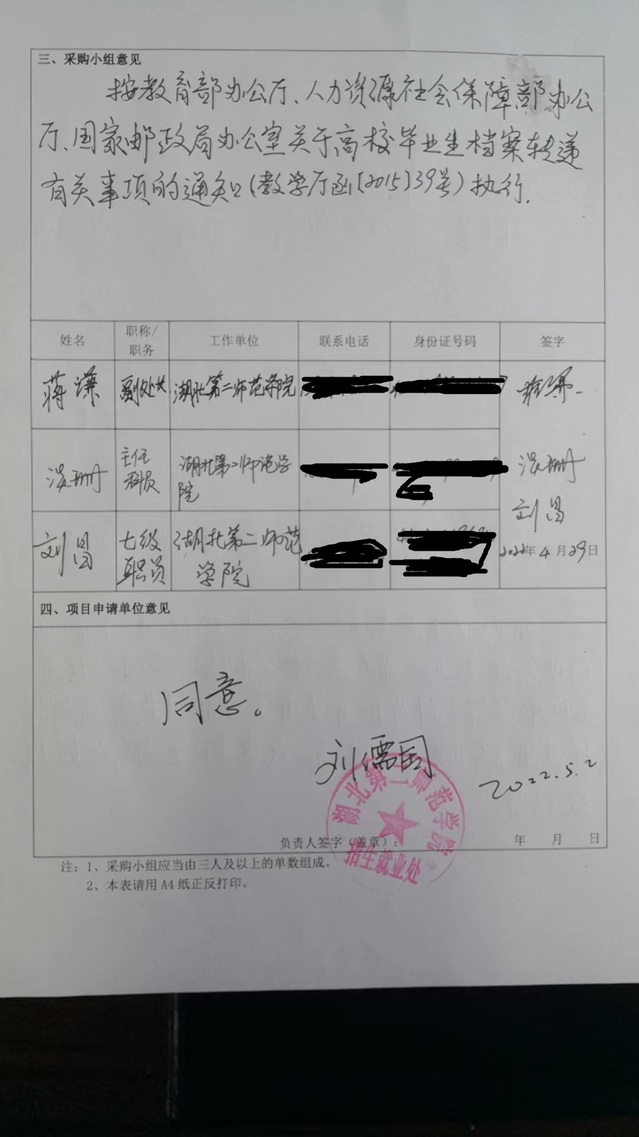 三、采购小组意见
按教育部办公厅、人力资源社会保障部办公
厅、国家邮政局办公室关于高校毕业生档案转递
有关事项的通知(教学厅函[2015]39号)执行.
姓名 职称/职务 工作单位 联系电话 身份证号码 签字
蒋谦 副处长 湖北第二师范学院 蒋谦
主任科员 湖北第二师范学院
刘昌 七级职员 湖北第二师范学院 刘昌
2022年4月29日
四、项目申请单位意见
同意。
刘儒国
2022.5.2
湖北第二师范学院
招生就业处
负责人签字(盖章): 年 月 日
注:1、采购小组应当由三人及以上的单数组成。
2、本表请用A4纸正反打印。